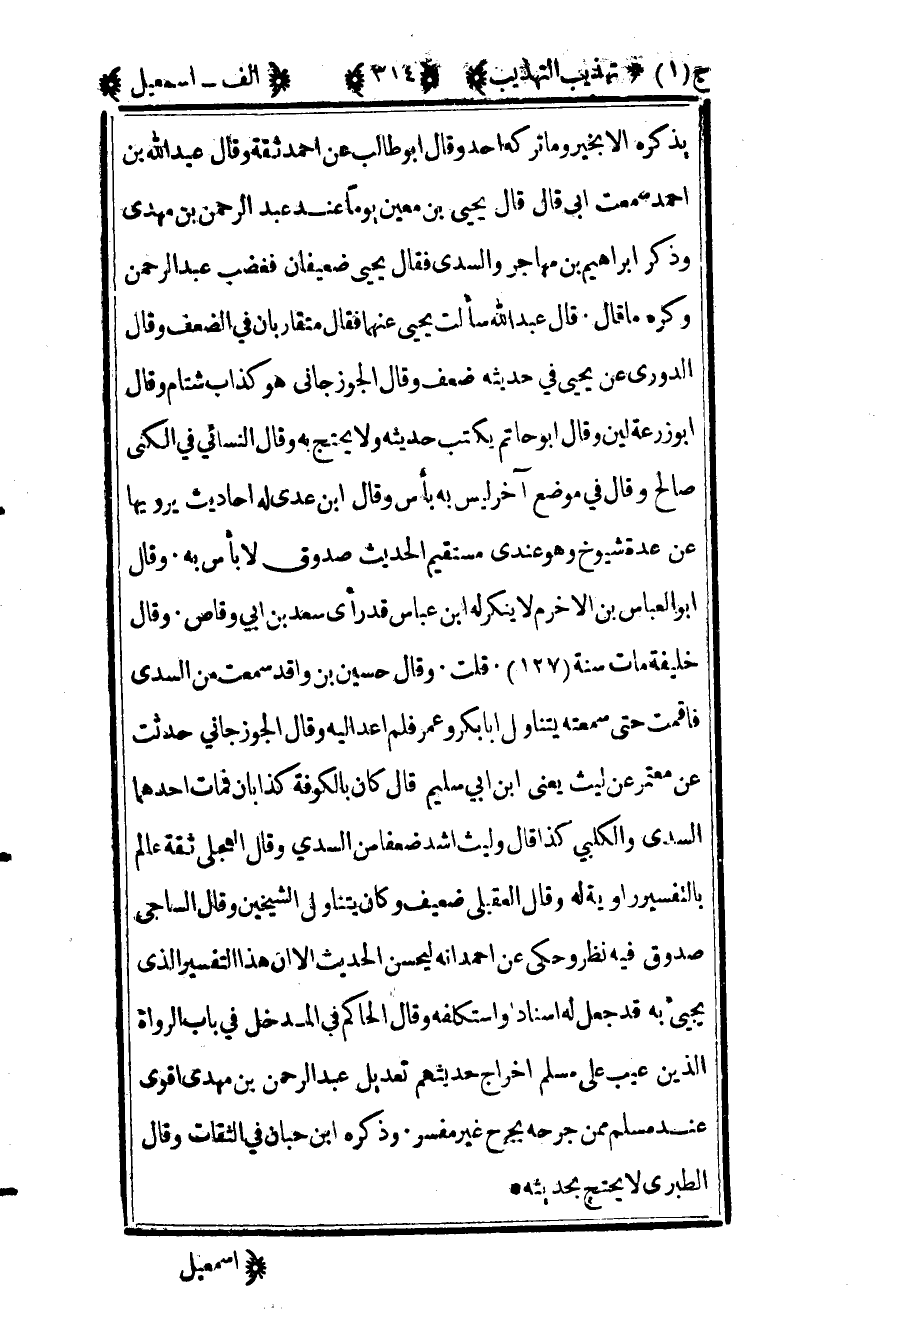 ج (١) ﴿ تهذيب التهذيب ﴾ ﴿ ٣١٤ ﴾ ﴿ الف ـ اسمعيل ﴾
يذكره الا بخير وما تركه احد وقال ابو طالب عن احمد ثقة وقال عبد الله بن
احمد سمعت ابى قال قال يحيى بن معين يوما عند عبد الرحمن بن مهدى
وذكر ابراهيم بن مهاجر والسدى فقال يحيى ضعيفان فغضب عبد الرحمن
وكره ما قال ٠ قال عبد الله سألت يحيى عنهما فقال متقاربان في الضعف وقال
الدورى عن يحيى في حديثه ضعف وقال الجوزجانى هو كذاب شتام وقال
ابو زرعة لين وقال ابو حاتم يكتب حديثه ولا يحتج به وقال النسائي في الكنى
صالح وقال في موضع آخر ليس به بأس وقال ابن عدى له احاديث يرويها
عن عدة شيوخ وهو عندى مستقيم الحديث صدوق لا بأس به ٠ وقال
ابو العباس بن الاخرم لا ينكر له ابن عباس قد رأى سعد بن ابي وقاص ٠ وقال
خليفة مات سنة (١٢٧) ٠ قلت ٠ وقال حسين بن واقد سمعت من السدى
فاقمت حتى سمعته يتناول ابا بكر وعمر فلم اعد اليه وقال الجوزجاني حدثت
عن معتمر عن ليث يعنى ابن ابي سليم قال كان بالكوفة كذابان فمات احدهما
السدى والكلبي كذا قال وليث اشد ضعفا من السدي وقال العجلى ثقة عالم
بالتفسير راوية له وقال العقيلى ضعيف وكان يتناول الشيخين وقال الساجى
صدوق فيه نظر وحكى عن احمد انه ليحسن الحديث الا ان هذا التفسير الذى
يجيئ به قد جعل له اسنادا واستكلفه وقال الحاكم في المدخل في باب الرواة
الذين عيب على مسلم اخراج حديثهم تعديل عبد الرحمن بن مهدى اقوى
عند مسلم ممن جرحه بجرح غير مفسر ٠ وذكره ابن حبان في الثقات وقال
الطبرى لا يحتج بحديثه •
﴿ اسمعيل